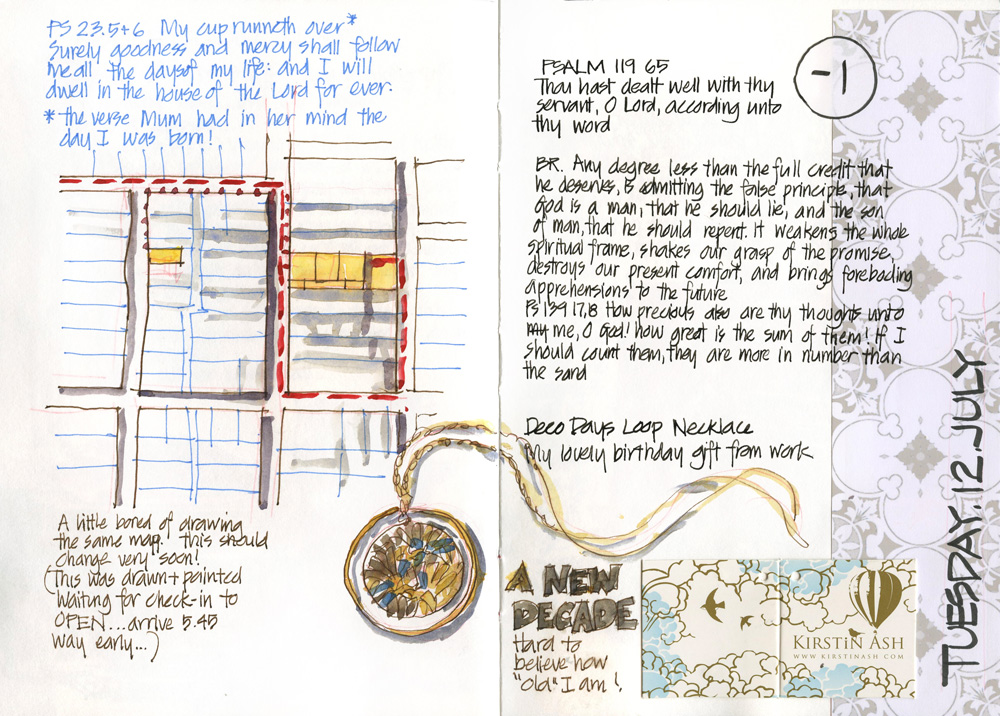 PS 23.5+6 My cup runneth over*
Surely goodness and mercy shall follow
me all the days of my life: and I will
dwell in the house of the Lord for ever.
* the verse Mum had in her mind the
day I was born!
A little bored of drawing
the same map! this should
change very soon!
(This was drawn + painted
waiting for check-in to
OPEN... arrive 5.45
way early...)
PSALM 119 65
Thou hast dealt well with thy
servant, O Lord, according unto
thy word
-1
BR. Any degree less than the full credit that
he deserves, is admitting the false principle, that
God is a man, that he should lie, and the son
of man, that he should repent. It weakens the whole
spiritual frame, shakes our grasp of the promise,
destroys our present comfort, and brings foreboding
apprehensions to the future
PS 139 17,18 How precious also are thy thoughts unto
my me, O God! how great is the sum of them! If I
should count them, they are more in number than
the sand
Deco Days Loop Necklace
My lovely birthday gift from work
A NEW
DECADE
Hard to
believe how
"old" I am!
KIRSTIN ASH
WWW.KIRSTINASH.COM
TUESDAY.12.JULY